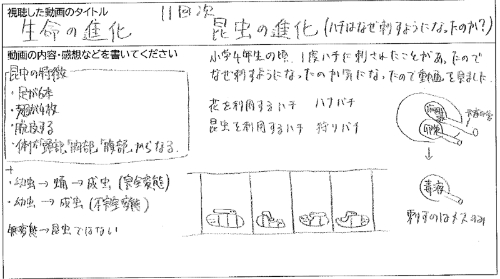 視聴した動画のタイトル
11回次
生命の進化
昆虫の進化(ハチはなぜ刺すようになったのか?)
動画の内容・感想などを書いてください
小学4年生の頃、1度ハチに刺されたことがあったので
なぜ刺すようになったのか気になったので動画を見ました。
昆虫の特徴
・足が6本
・翅が4枚
・脱皮する
・体が「頭部」「胸部」「腹部」からなる。
花を利用するハチ ハナバチ
昆虫を利用するハチ 狩りバチ
・幼虫→蛹→成虫(完全変態)
・幼虫→成虫(不完全変態)
無変態→昆虫ではない
卵
毒液
刺すのはメスのみ